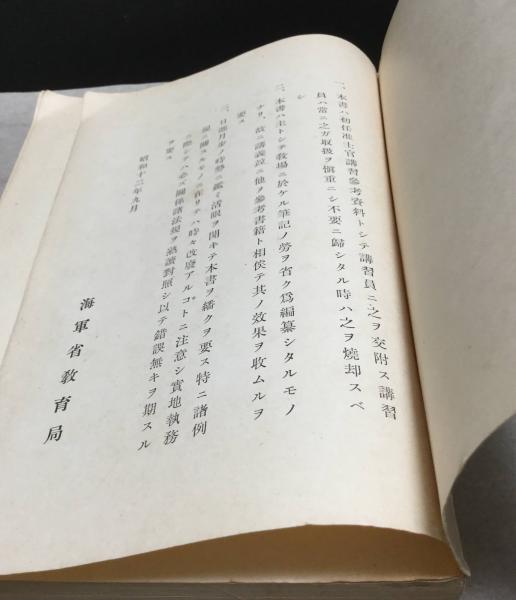 一、本書ハ初任准士官講習參考資料トシテ講習員ニ之ヲ交附ス講習
員ハ常ニ之ガ取扱ヲ愼重ニシ不要ニ歸シタル時ハ之ヲ燒却スベ
シ
二、本書ハ主トシテ教場ニ於ケル筆記ノ勞ヲ省ク爲編纂シタルモノ
ナリ、故ニ講義竝ニ他ノ參考書籍ト相俟テ其ノ效果ヲ收ムルヲ
要ス
三、日進月歩ノ時勢ニ鑑ミ活眼ヲ開キテ本書ヲ繙クヲ要ス特ニ諸例
規ニ關スルモノニ在リテハ時々改廢アルコトニ注意シ實地執務
ニ際シテハ必ズ關係諸法規ヲ熟讀對照シ以テ錯誤無キヲ期スル
ヲ要ス
昭和十二年九月
海軍省敎育局